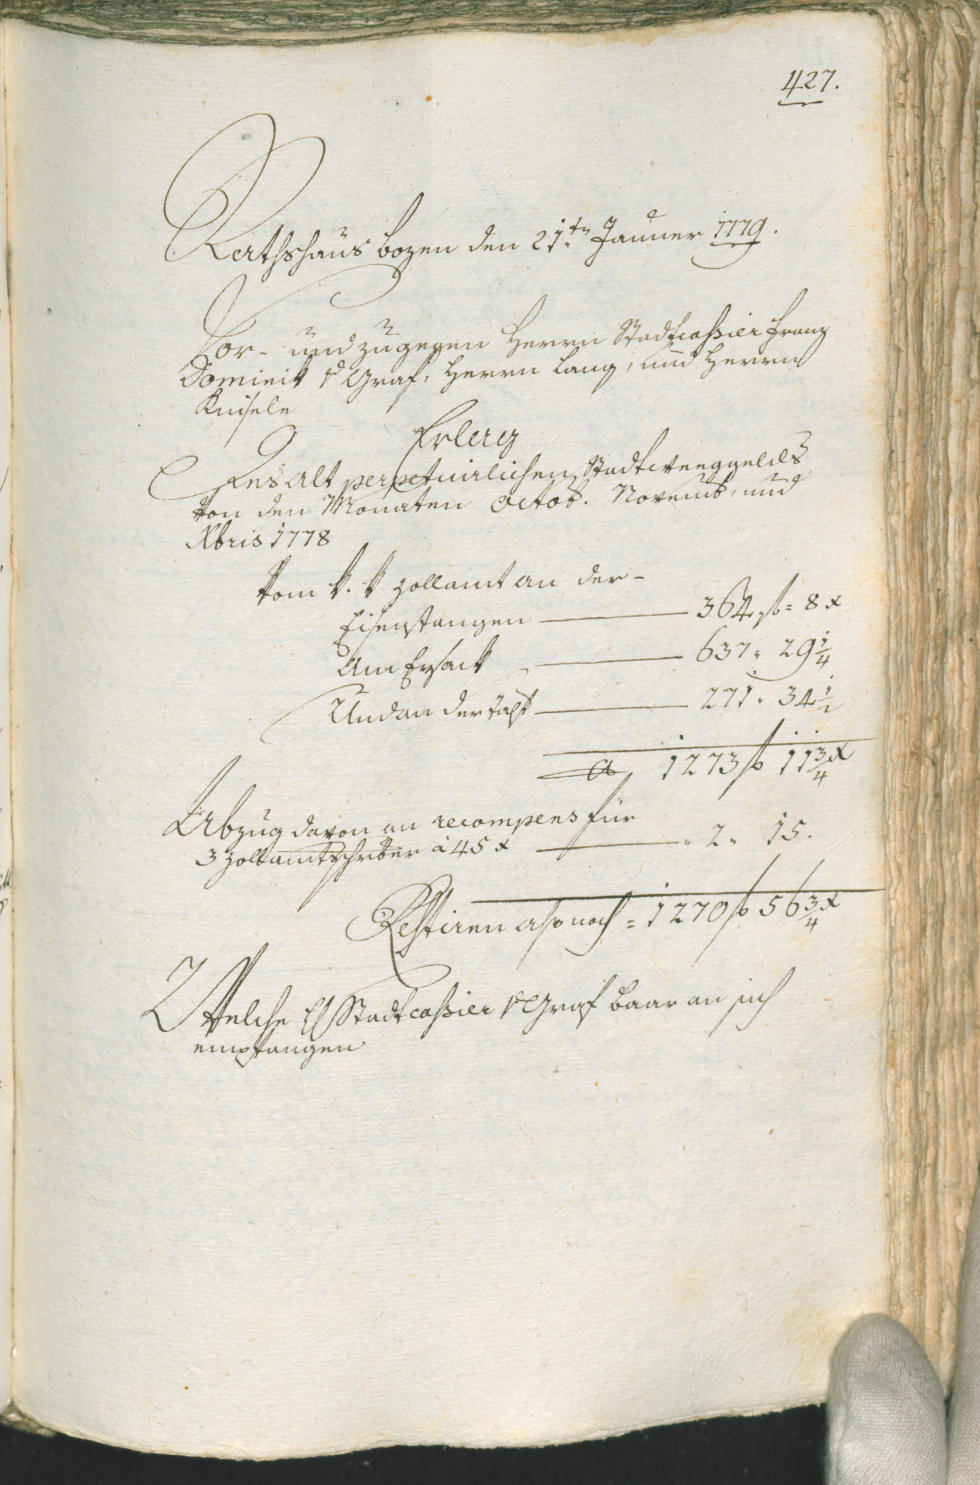 427.
Rathshaus Bozen den 21.ten Jänner 1779.
Vor- und zugegen Herrn Stadtcassier Franz
Dominik v Graf, Herrn Lang, und Herrn
Knisele
Erlerg
Des alt perpetuirlichen Stadtweeggelds
von den Monaten Octob. Novemb. und
Xbris 1778
Vom k. k Zollamt an der-
Eisenstangen 364 f = 8 x
Am Eysack 637 " 29 1/4
Und an der Talf 271 " 34 1/2
a 1273 f 11 3/4 x
Abzug davon an recompens für
3 Zollamtschreiber à 45 x " 2 " 15.
Restiren also noch = 1270 f 56 3/4 x
Welche H Stadtcassier v Graf baar an sich
empfangen